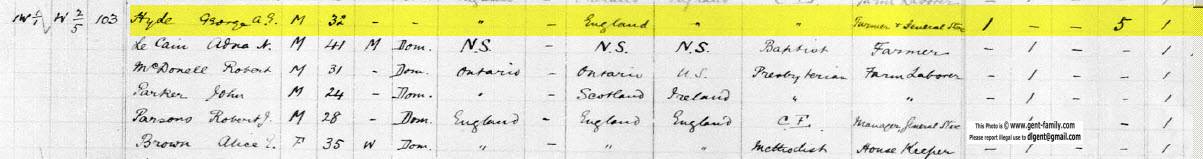 W 1/1 W 2/5 103 Hyde George A. G. M 32 - - " - England " " Farmer & General Store 1 - - 5 1
Le Cain Adna N. M 41 M Dom. N.S. - N.S. N.S. Baptist Farmer - 1 - - 1
McDonell Robert M 31 - Dom. Ontario - Ontario U.S. Presbyterian Farm Laborer - 1 - - 1
Parker John M 24 - Dom. " - Scotland Ireland " " - 1 - - 1
Parsons Robert J. M 28 - Dom. England - England England C.E. Manager, General Store - 1
Brown Alice E. F 35 W Dom. " - " " Methodist House Keeper - 1 - - 1
This Photo is © www.gent-family.com
Please report illegal use to dlgent@gmail.com